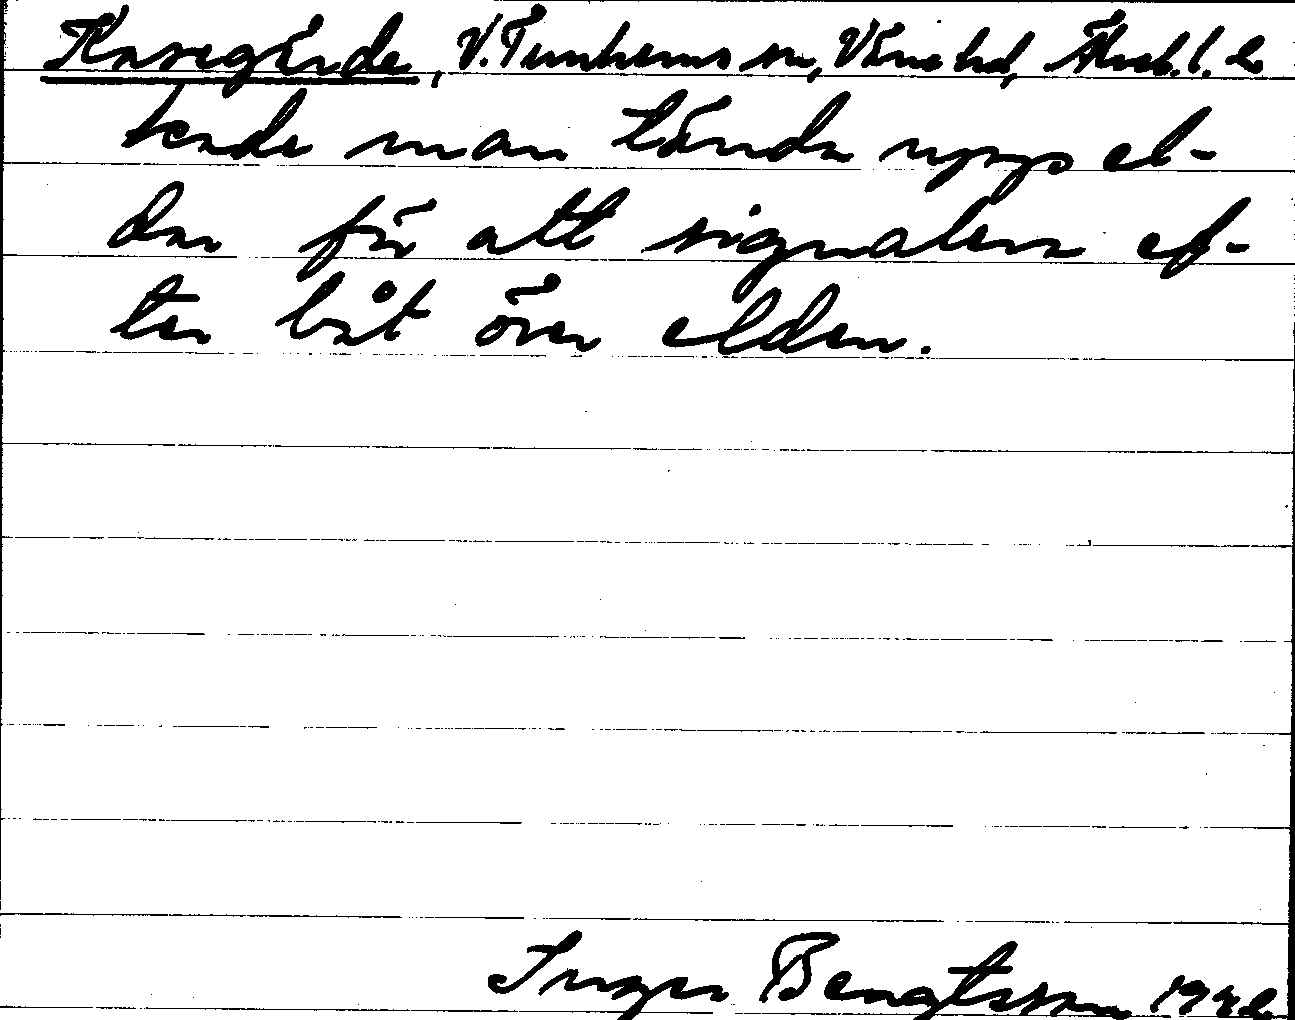 Kasegärde, V. Tunhems sn, Väne hd, Älvsb. l. 2
kade man tända upp el-
dar för att signalera ef-
ter båt över elden.
Inger Bengtsson